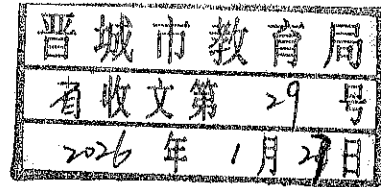 晋城市教育局
省收文第 29 号
2026 年 1 月 29 日